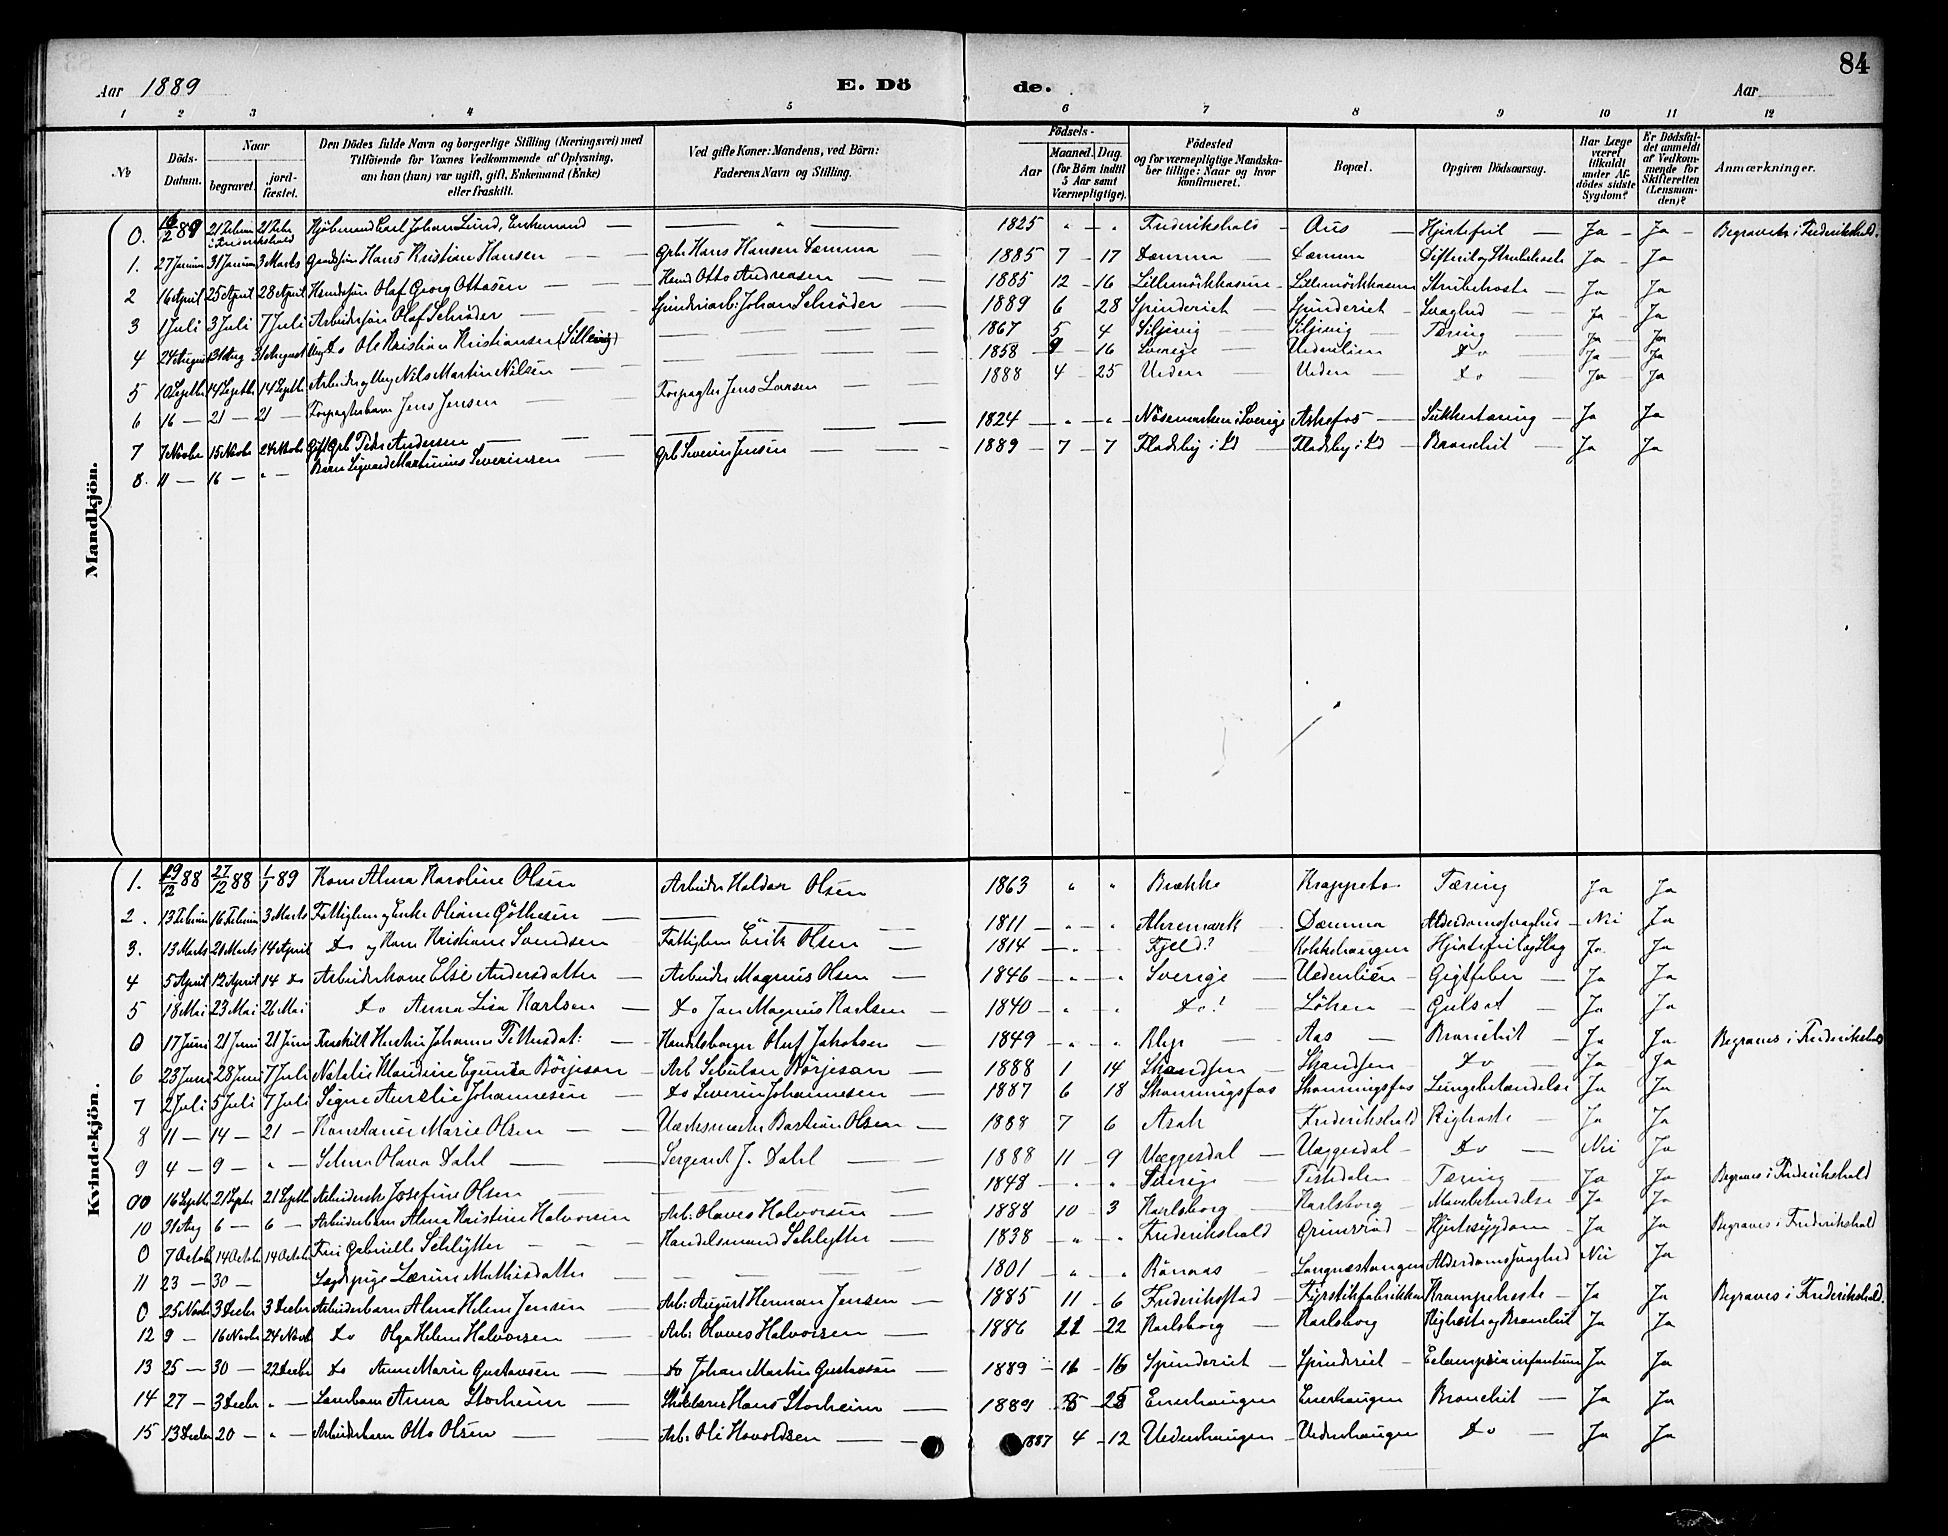 84
Aar 1889 E. Dö de. Aar
1 2 3 4 5 6 7 8 9 10 11 12
No
Döds-Datum.
Naar
begravet.
jord-fæstet.
Den Dödes fulde Navn og borgerlige Stilling (Næringsvei) med
Tilföiende for Voxnes Vedkommende af Oplysning,
om han (hun) var ugift, gift, Enkemand (Enke)
eller fraskilt.
Ved gifte Koner: Mandens, ved Börn:
Faderens Navn og Stilling.
Födsels-
Aar
Maaned. Dag.
(for Börn indtil
5 Aar samt
Værnepligtige).
Födested
og for værnepligtige Mandska-
ber tillige: Naar og hvor
konfirmeret.
Bopæl.
Opgiven Dödsaarsag.
Har Læge
været
tilkaldt
under Af-
dödes sidste
Sygdom?
Er Dödsfal-
det anmeldt
af Vedkom-
mende for
Skifteretten
(Lensman-
den)?
Anmærkninger.
Mandkjön.
0. 16/2 89 21 Febru i Frederikshald 21 Febr Kjöbmand Carl Johan Lund, Enkemand — 1825 " " Frederikshald Aus Hjertefeil Ja Ja Begravet i Frederikshald.
1. 27 Januar 31 Januar 3 Marts Hans Kristian Hansen — Gpbr Hans Hansen Dæmma 1885 7 17 Dæmma Dæmma Difterit og Strubehoste Ja Ja
2 16 April 25 April 28 April Olaf Georg Ottosen — Otto Andreasen 1885 12 16 Strubehoste Ja Ja
3 1 Juli 3 Juli 7 Juli Arbeidersön Olaf Schröder — Spinderiarb: Johan Schröder 1889 6 28 Spinderiet Spinderiet Svaghed Ja Ja
4 24 August 31 Aug 31 August Ung Do Ole Kristian Kristiansen (Sillevig) — 1867 5 4 Siljevig Siljevig Tæring Ja Ja
5 10 Septbr 14 Septbr 14 Septb Arbeider og Ung Nils Martin Nilsen — 1858 9 16 Sverige Vedenlien Do Ja Ja
6 16 — 21 — 21 — Forpagterbarn Jens Jensen — Forpagter Jens Larsen 1888 4 25 Veden Veden Do Ja Ja
7 7 Novbr 15 Novbr 24 Novbr Gift Gpb Peder Andersen — 1824 " " Nössemarken i Sverige Askefos Sukkertæring Ja Ja
8. 11 — 16 — " — Barn Sigvard Martinius Severinsen — Gpb Severin Jensen 1889 7 7 Fladeby i Id Fladeby i Id Bronchit Ja Ja
Kvindekjön.
1. 19/12 88 27/12 88 1/1 89 Kone Alma Karoline Olsen Arbeider Haldor Olsen 1863 " " Brække Krappeto Tæring Ja Ja
2. 13 Februar 16 Februar 3 Marts Fattiglem og Enke Oliane Göthesen — 1811 " " Ahremark Dæmma Alderdomssvaghed Nei Ja
3. 13 Marts 21 Marts 14 April Do og Kone Kristiane Svendsen Fattiglem Erik Olsen 1814 " " Fjeld? Kokkehaugen Hjertefeil og Slag Ja Ja
4 5 April 12 April 14 Do Arbeiderkone Else Andersdatter — Arbeider Magnus Olsen 1846 " " Sverige Vedenlien Gigtfeber Ja Ja
5 18 Mai 23 Mai 26 Mai Do Anna Lisa Karlsen — Do Jan Magnus Karlsen 1840 " " Do? Löken Gulsot Ja Ja
0 17 Juni 21 Juni 21 Juni Fraskilt Hustru Johanne Pettersdat: — Handelsborger Oluf Jakobsen 1849 " " Aas Bronchit Ja Ja Begraves i Frederikshald
6 23 Juni 28 Juni 7 Juli Natalie Klaudine Egunda Börjeson Arb Sebulon Börjeson 1888 1 14 Skandsen Skandsen Do Ja Ja
7 2 Juli 5 Juli 7 Juli Signe Aurelie Johannesen Do Severin Johannesen 1887 6 18 Skonningsfos Skonningsfos Lungebetændelse Ja Ja
8 11 — 14 — 21 — Konstance Marie Olsen — Bastian Olsen 1888 7 6 Asak Frederikshald Kighoste Ja Ja
9 4 — 9 — " — Selma Olava Dahl — Sergeant J. Dahl 1888 11 9 Væggesdal Væggesdal Do Nei Ja
00 16 Septb 21 Septbr 21 Septb Josefine Olsen — 1848 " " Sverige Tistedalen Tæring Ja Ja Begraves i Frederikshald
10 31 Aug 6 — 6 — Arbeiderbarn Alma Kristine Halvorsen Arb: Olaves Halvorsen 1888 10 3 Karlsborg Karlsborg Mavebetændelse Ja Ja
0 7 Octob 14 Octob 14 Octob Gabrielle Schlytter — Handelsmand Schlytter 1838 " " Frederikshald Grimsröd Hjertesygdom Ja Ja Begraves i Frederikshald
11 23 — 30 — Lægdspige Mathisdatter — 1801 " " Rönaas Langnæstangen Alderdomssvaghed Nei Ja
0 25 Novbr 3 Decbr 3 Decbr Arbeiderbarn Alma Helene Jensen — Arb: August Herman Jensen 1885 11 6 Frederikstad Fyrstikfabrikken Krampehoste Ja Ja Begraves i Frederikshald.
12 9 — 16 Novbr 24 Novb Do Olga Helene Halvorsen — Arb: Olaves Halvorsen 1886 11 22 Karlsborg Karlsborg Kighoste og Bronchit Ja Ja
13 25 — 30 — 22 Decbr Do Anne Marie Gustavsen — Do Johan Martin Gustavsen 1889 16 Spinderiet Spinderiet Eclampsia infantum Ja Ja
14 27 — 3 Decbr " — Anna Storheim — Hans Storheim 1889 25 Enerhaugen Enerhaugen Bronchit Ja Ja
15 13 Decbr 20 — " — Arbeiderbarn Otto Olsen — Arb: Ole Havoldsen 1887 4 12 Vedenshaugen Vedenshaugen Do Ja Ja